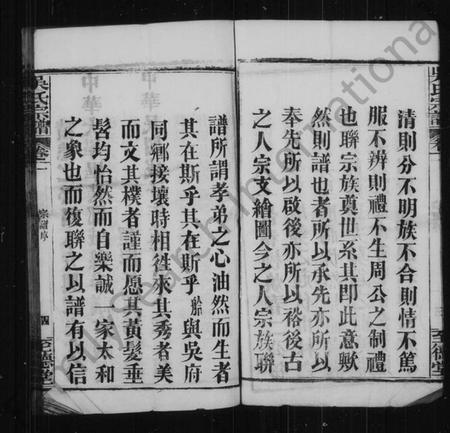 清則分不明族不合則情不篤
服不辨則禮不生周公之制禮
也聯宗族奠世系其即此意歟
然則譜也者所以承先亦所以
奉先所以啟後亦所以裕後古
之人宗支繪圖今之人宗族聯
譜所謂孝弟之心油然而生者
其在斯乎其在斯乎 與吳府
同鄉接壤時相徃來其秀者美
而文其樸者謹而愿其黃髮垂
髫均怡然而自樂誠一家太和
之象也而復聯之以譜有以信
吳氏宗譜
卷二
四
至德堂
吳氏宗譜
至德堂
My China Search International